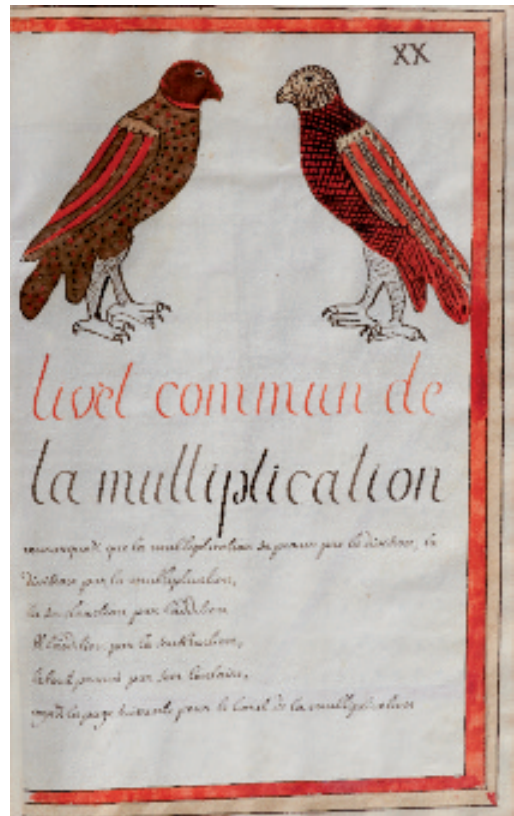 XX
livet commun de
la multiplication
remarqués que la multiplication se prouve par la division, la
division par la multiplication,
la soustraction par l'addition
et l'addition par la soustraction,
le tout prouvé par son contraire,
page suivante pour le livret de la multiplication